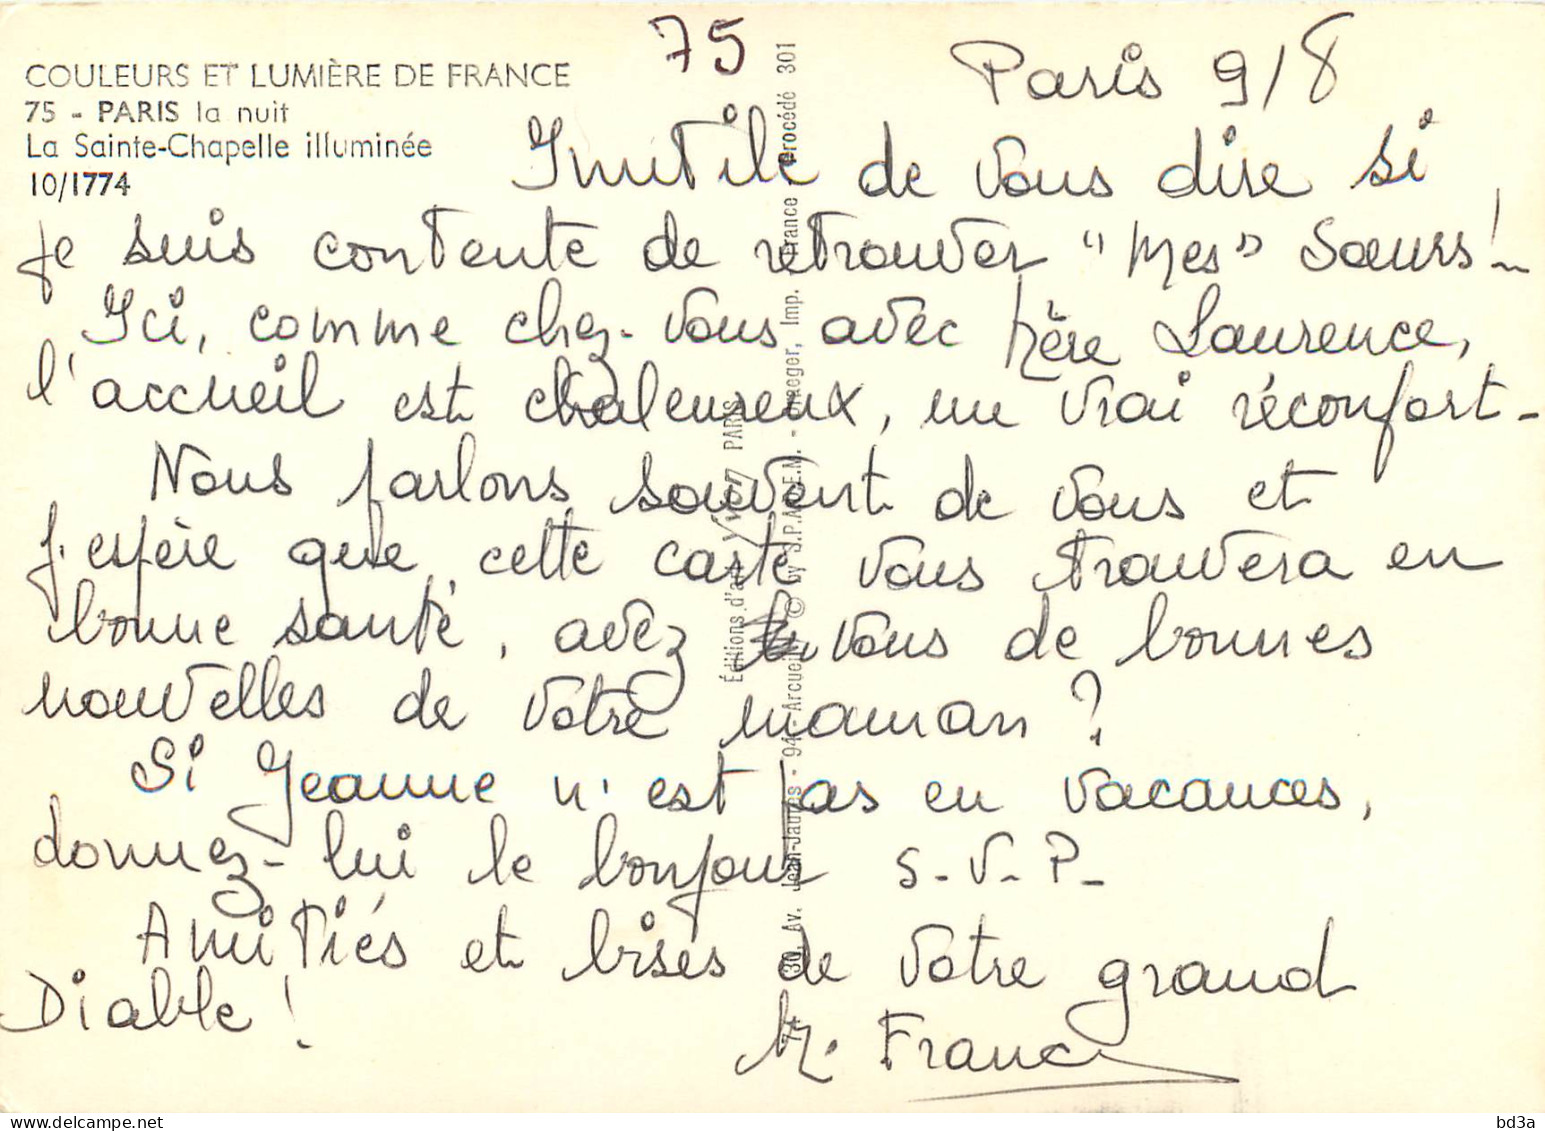 75
COULEURS ET LUMIÈRE DE FRANCE
75 - PARIS la nuit
La Sainte-Chapelle illuminée
10/1774
Paris 9/8
Inutile de vous dire si
je suis contente de retrouver "mes" Soeurs!
Ici, comme chez-vous avec Mère Laurence,
l'accueil est chaleureux, un vrai réconfort-
Nous parlons souvent de vous et
j'espère que cette carte vous trouvera en
bonne santé, avez vous de bonnes
nouvelles de votre maman ?
Si Jeanne n'est pas en vacances,
donnez-lui le bonjour S-V-P-
Amitiés et bises de votre grand
Diable !
M. France
Éditions d'art Yvon PARIS
30, Av. Jean-Jaurès - 94 - Arcueil © by S.P.A.D.E.M. - Draeger, Imp. France procédé 301
bd3a